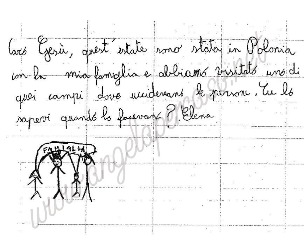 Caro Gesù, quest'estate sono stata in Polonia
con la mia famiglia e abbiamo visitato uno di
quei campi dove uccidevano le persone. Tu lo
sapevi quando lo facevano? Elena
FAMIGLIA